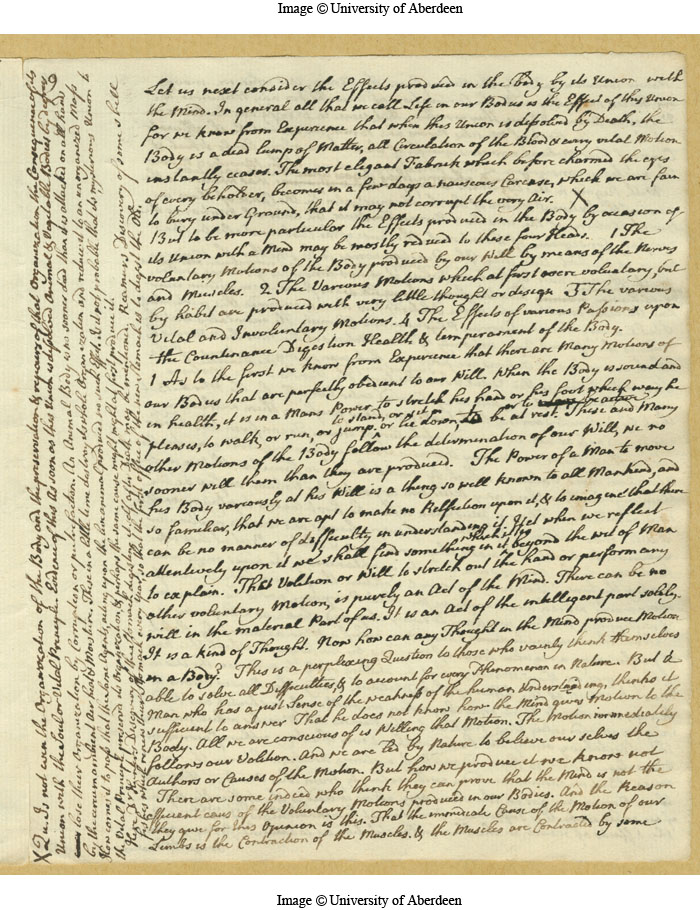 Image © University of Aberdeen
Let us next consider the Effects produced in the body by its Union with
the Mind. In general all that we call Life in our Bodies is the Effect of this Union
for we know from Experience that when this Union is dissolved by Death, the
Body is a dead lump of Matter, all Circulation of the Blood & every vital Motion
instantly ceases. The most elegant Fabrick which before charmed the eyes
of every beholder, becomes in a few days a nauseous Carcase, which we are fain
to bury under Ground, that it may not corrupt the very Air. X
But to be more particular the Effects produced in the Body by occasion of
its Union with a Mind may be mostly reduced to these four Heads. 1 The
voluntary Motions of the Body produced by our Will by means of the Nerves
and Muscles. 2 The Various Motions which at first were voluntary, but
by habit are produced with very little thought or design 3 The various
Vital and Involuntary Motions. 4 The Effects of various Passions upon
the Countenance Digestion Health & temperament of the Body.
1 As to the first we know from Experience that there are Many Motions of
our Bodies that are perfectly obedient to our Will. When the Body is sound and
in health, it is in a Mans Power to stretch his hand or his foot which way he
pleases, to walk, or run, or jump. to stand, or sit or lie down, or to be at rest. These and Many
other Motions of the Body follow the determination of our Will, we no
sooner will them than they are produced. The Power of a Man to move
his Body variously at his Will is a thing so well known to all Mankind, and
so familiar, that we are apt to make no Reflection upon it, & to imagine that there
can be no manner of difficulty in understanding it. Yet when we reflect
attentively upon it we shall find something in it which is beyond the wit of Man
to explain. That Volition or Will to stretch out the hand or perform any
other voluntary Motion, is purely an Act of the Mind. There can be no
will in the material Part of us. It is an Act of the intelligent part solely.
It is a kind of Thought. Now how can any Thought in the Mind produce Motion
in a Body? This is a perplexing Question to those who vainly think themselves
able to solve all Difficulties, & to account for every Phenomenon in Nature. But a
Man who has a just Sense of the weakness of the human Understanding, thinks it
sufficient to answer That he does not know how the Mind gives Motion to the
Body. All we are conscious of is Willing that Motion. The Motion immediately
follows our Volition. And we are led by Nature to believe our selves the
Authors or Causes of the Motion. But how we produce it we know not
There are some indeed who think they can prove that the Mind is not the
efficient cause of the Voluntary Motions produced in our Bodies. And the Reason
they give for this Opinion is this. That the immediate Cause of the Motion of our
Limbs is the Contraction of the Muscles. & the Muscles are Contracted by some
X Qu. Is not even the Organization of the Body and the preservation & repairing of that Organization the Consequence of its
Union with the Soul or Vital Principle. Evidence of this As soon as this Union is dissolved Animal & Vegitable Bodies by degrees
lose their Organization by Corruption or putrefaction. An Animal Body is no sooner dead than it is attacked on all hands,
by the circumambient Air heat & Moisture. These in a little time destroy its whole Organization and reduce it to an unorganized Mass
How comes it to pass that the same Agents, acting upon the live animal produced no such Effect. Is it not probable that its mysterious Union to
the Vital Principle preserved its Organization & perhaps the same cause might at first produce it.
Image © University of Aberdeen